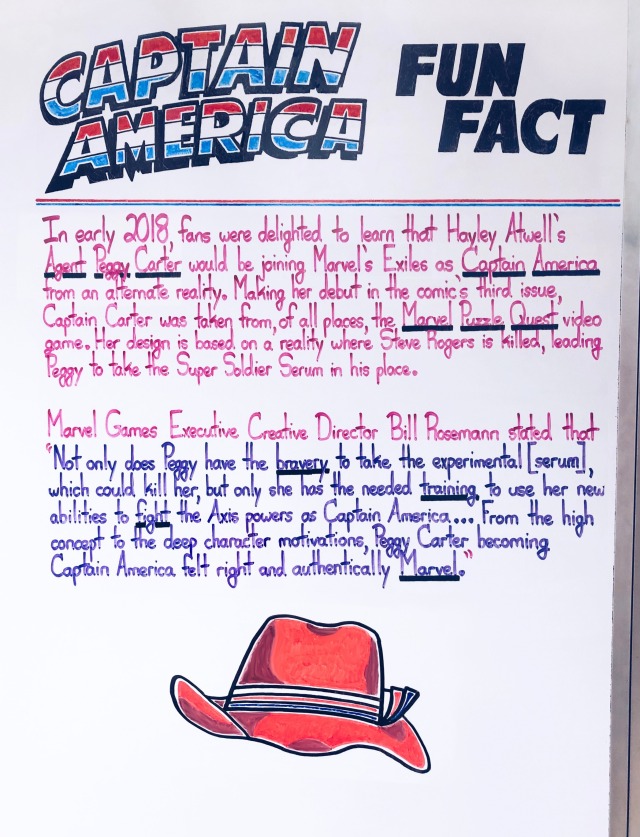 CAPTAIN
AMERICA
FUN
FACT
In early 2018, fans were delighted to learn that Hayley Atwell's
Agent Peggy Carter would be joining Marvel's Exiles as Captain America
from an alternate reality. Making her debut in the comic's third issue,
Captain Carter was taken from, of all places, the Marvel Puzzle Quest video
game. Her design is based on a reality where Steve Rogers is killed, leading
Peggy to take the Super Soldier Serum in his place.
Marvel Games Executive Creative Director Bill Rosemann stated that
"Not only does Peggy have the bravery to take the experimental [serum],
which could kill her, but only she has the needed training to use her new
abilities to fight the Axis powers as Captain America.... From the high
concept to the deep character motivations, Peggy Carter becoming
Captain America felt right and authentically Marvel."